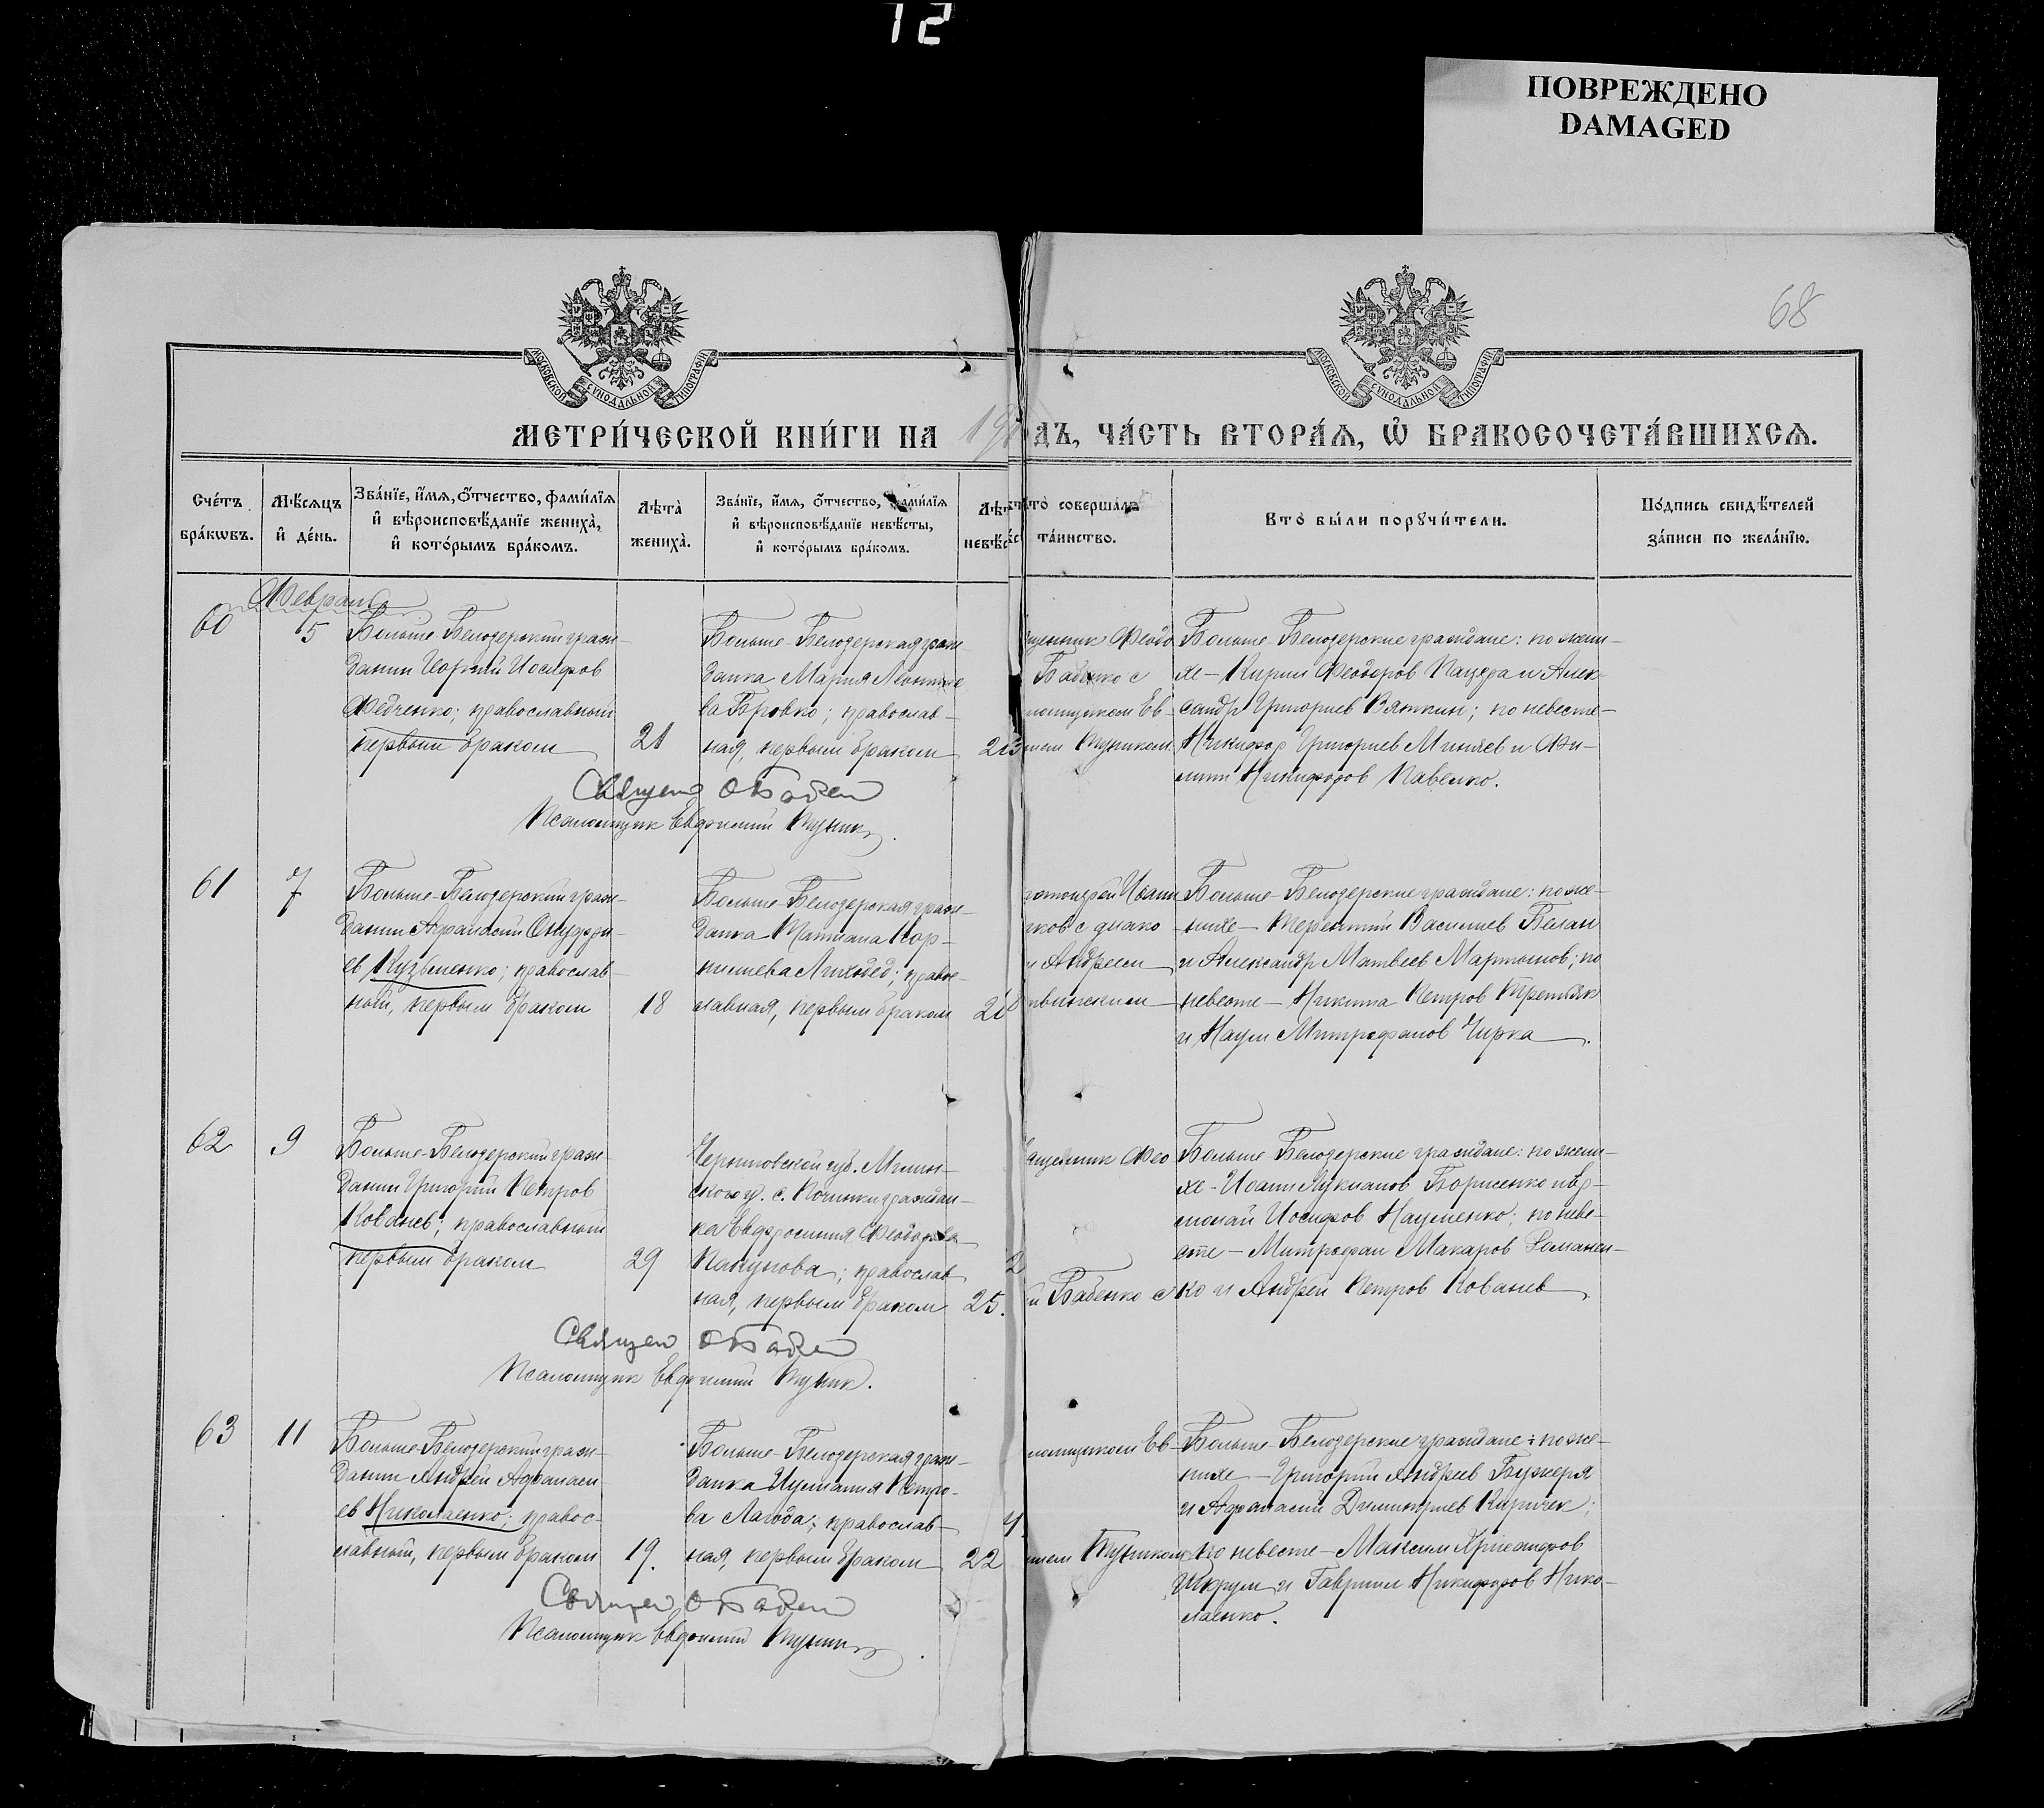 12
ПОВРЕЖДЕНО
DAMAGED
68
МОСКОВСКОЙ СУНОДАЛЬНОЙ ТИПОГРАФІИ
МОСКОВСКОЙ СУНОДАЛЬНОЙ ТИПОГРАФІИ
МЕТРИ́ЧЕСКОЙ КНИ́ГИ НА 19
ДЪ, ЧА́СТЬ ВТОРА́Я, Ѽ БРАКОСОЧЕТА́ВШИХСЯ.
Сче́тъ бра́кωвъ.
Мѣ́сяцъ и҆ де́нь.
Зва́нїе, и҆́мя, ѻ҆́тчество, фами́лїя
и҆ вѣроисповѣ́данїе жениха̀,
и҆ кото́рымъ бра́комъ.
Лѣта̀ жениха̀.
Зва́нїе, и҆́мя, ѻ҆́тчество, фами́лїя
и҆ вѣроисповѣ́данїе невѣ́сты,
и҆ кото́рымъ бра́комъ.
Лѣт
невѣ́с
то̀ соверша́лъ
та́инство.
Кто̀ бы́ли порꙋчи́тели.
По́дпись свидѣ́телей
за́писи по жела́нїю.
Февраль
60
5
Больше-Белозерский граж-
данин Иосифов
Федченко; православный
первым браком
21
Больше-Белозерская граж-
данка Мария
ва Бровко; православ-
ная, первым браком
Бабенко с
Ев-
Пуником
Больше-Белозерские граждане: по жени-
хе – Кирил Феодоров Пацера и Алек-
сандр Григориев Вяткин; по невесте –
Никифор Григориев Миняев и Фи-
липп Никифоров Павенко.
Псаломщик Евфимий Пуник
61
7
Больше-Белозерский граж-
данин Афанасий Онуфри-
ев Кузьменко; православ-
ный, первым браком
18
Больше-Белозерская граж-
данка Татиана Кор-
нилиева Лиходед; правос-
лавная, первым браком
Иоанн
ков с диако
и Андреем
Больше-Белозерские граждане: по же-
нихе – Терентий Василиев Белан
и Александр Матвеев Мартынов; по
невесте – Никита Петров Третьяк
и Наум Митрофанов Чирка.
62
9
Больше-Белозерский граж-
данин Григорий Петров
Кованев; православный
первым браком
29
Черниговской губ. Мглин-
ского у. с. Починки граждан-
ка Евфросиния Феодорова
православ
ная, первым браком
25.
Фео
й Бабенко с
Больше-Белозерские граждане: по жени-
хе – Иоанн Лукианов Борисенко и Ер-
молай Иосифов Науменко; по неве-
сте – Митрофан Макаров Романен-
ко и Андрей Петров Кованев
Псаломщик Евфимий Пуник.
63
11
Больше-Белозерский граж-
данин Андрей Афанаси
ев Николаенко; правос-
лавный, первым браком
19.
Больше-Белозерская граж-
данка Иулиания Петро-
ва Лагода; православ-
ная, первым браком
22
ломщиком Ев-
Пуником
Больше-Белозерские граждане: по же-
нихе – Григорий Андреев Бужеря
и Афанасий Димитриев Киричек;
по невесте – Максим
Шкрум и Гавриил Никифоров Нико-
лаенко.
Псаломщик Евфимий Пуник